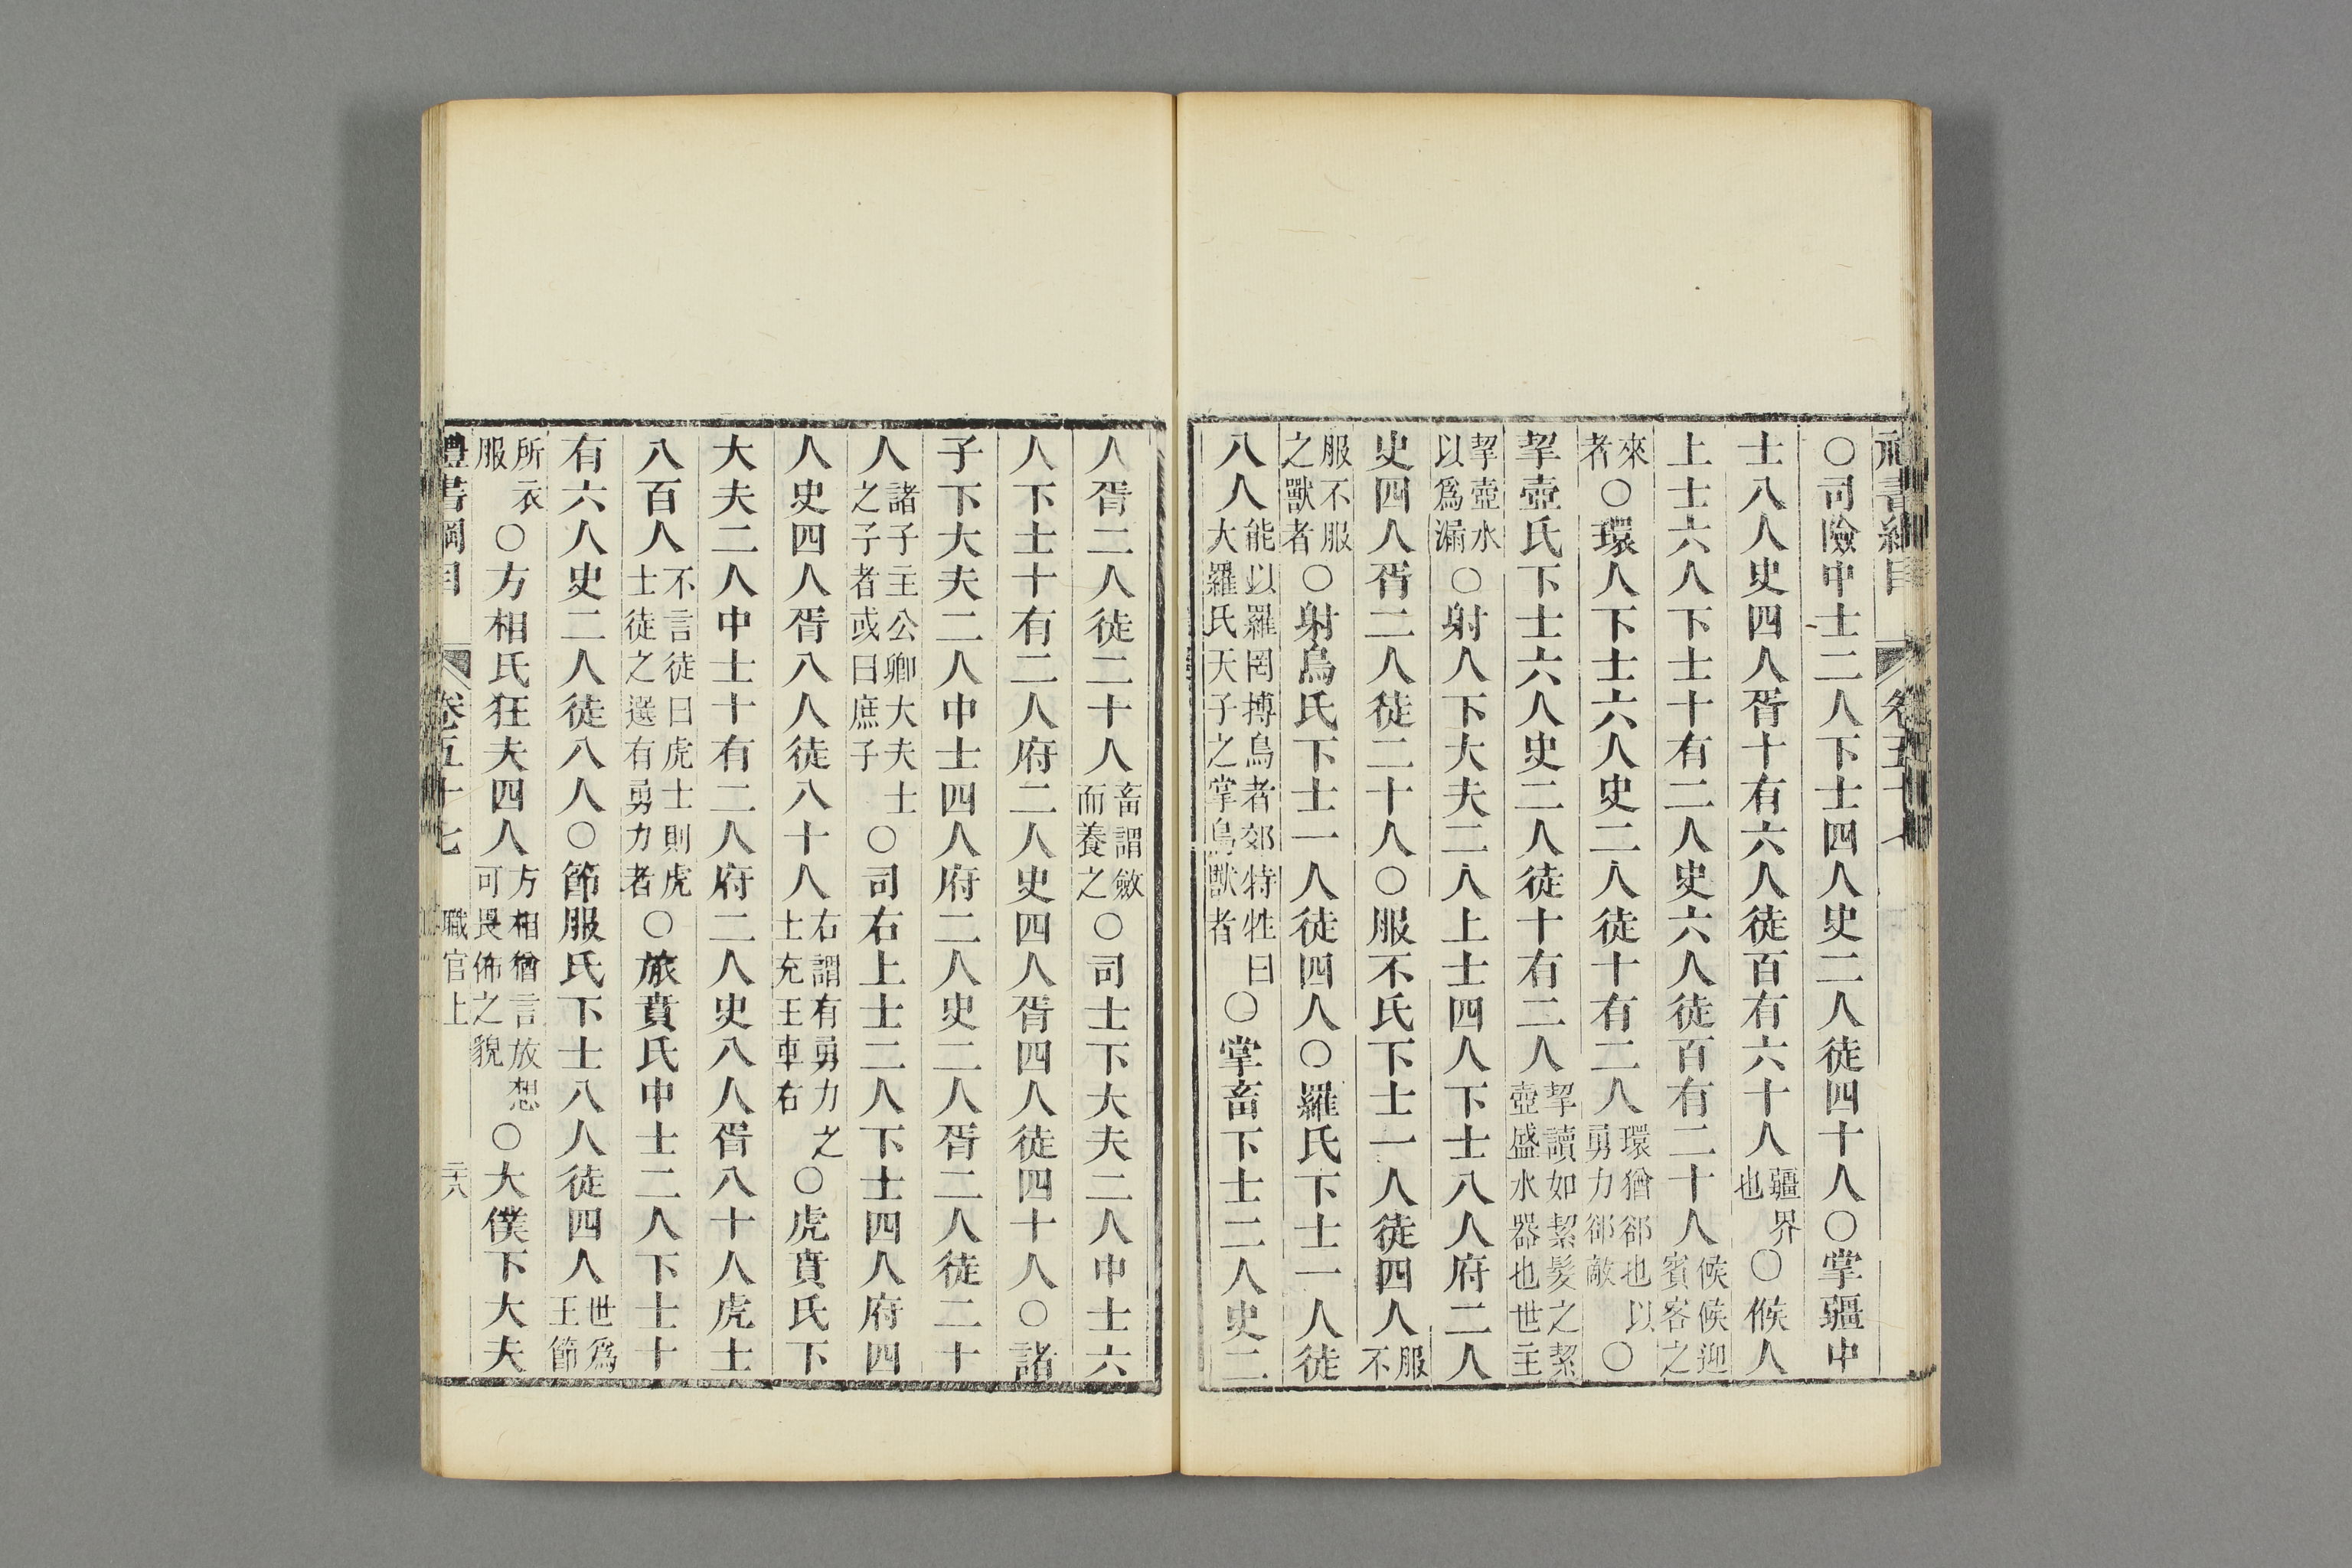 禮書綱目 卷五十七
○司險中士二人下士四人史二人徒四十人○掌疆中
士八人史四人胥十有六人徒百有六十人疆界也○候人
上士六人下士十有二人史六人徒百有二十人候候迎賓客之
來者○環人下士六人史二人徒十有二人環猶郤也以勇力郤敵○
挈壺氏下士六人史二人徒十有二人挈讀如絜髮之絜壺盛水器也世主
挈壺水以爲漏○射人下大夫二人上士四人下士八人府二人
史四人胥二人徒二十人○服不氏下士一人徒四人服不
服不服之獸者○射鳥氏下士一人徒四人○羅氏下士一人徒
八人能以羅罔搏鳥者郊特牲曰大羅氏天子之掌鳥獸者○掌畜下士二人史二
人胥二人徒二十人畜謂斂而養之○司士下大夫二人中士六
人下士十有二人府二人史四人胥四人徒四十人○諸
子下大夫二人中士四人府二人史二人胥二人徒二十
人諸子主公卿大夫士之子者或曰庶子○司右上士二人下士四人府四
人史四人胥八人徒八十人右謂有勇力之士充王車右○虎賁氏下
大夫二人中士十有二人府二人史八人胥八十人虎士
八百人不言徒曰虎士則虎士徒之選有勇力者○旅賁氏中士二人下士十
有六人史二人徒八人○節服氏下士八人徒四人世爲王節
所衣服○方相氏狂夫四人方相猶言放想可畏怖之貌○大僕下大夫
禮書綱目 卷五十七 職官上 二八